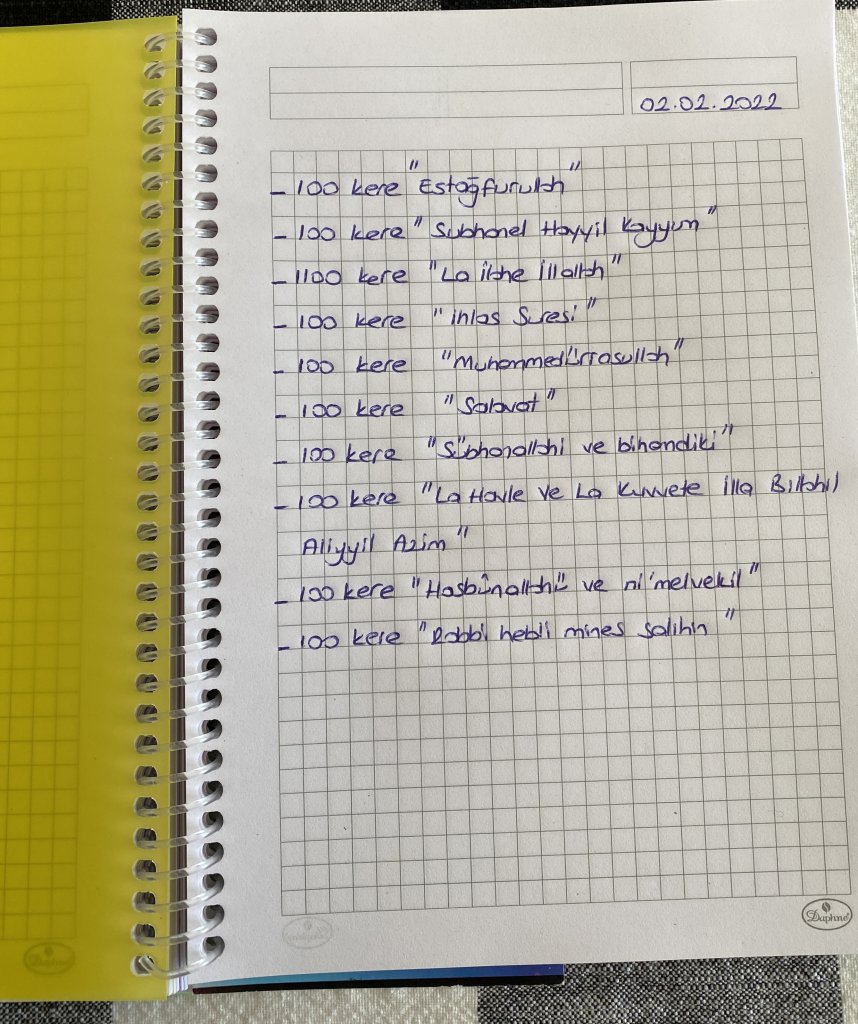 02.02.2022
- 100 kere "Estağfurullah"
- 100 kere "Subhanel Hayyil Kayyum"
- 1100 kere "La ilahe illallah"
- 100 kere "ihlas Suresi"
- 100 kere "Muhammedürrasullah"
- 100 kere "Salavat"
- 100 kere "Sübhanallahi ve bihamdiki"
- 100 kere "La Havle ve La Kuvvete illa Billahil
Aliyyil Azim"
- 100 kere "Hasbünallahü ve ni'melvekil"
- 100 kere "Rabbi hebli mines salihin"
Daphne
Daphne